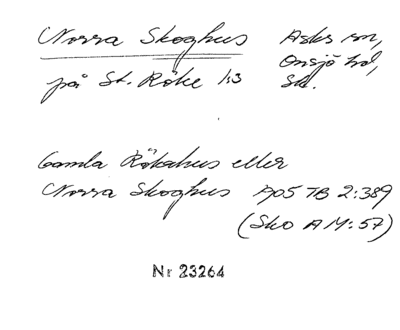 Norra Skoghus Asks sn,
Onsjö hd,
på St. Röke 1:3 Sk.
Gamla Rökahus eller
Norra Skoghus A05 TB 2:389
(Sko A M:57)
Nr 23264